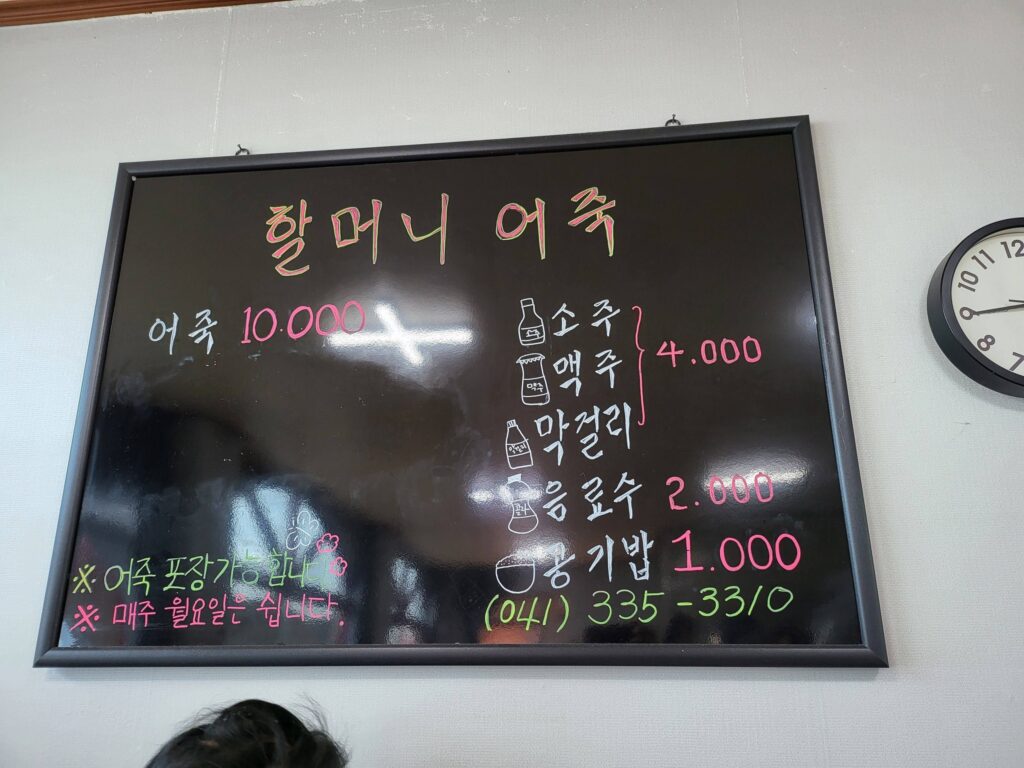 할머니 어죽
어죽 10.000
소주
맥주
막걸리
4.000
음료수 2.000
공기밥 1.000
※ 어죽 포장가능합니다
※ 매주 월요일은 쉽니다.
(041) 335-3310
12
11
10
9
8
7